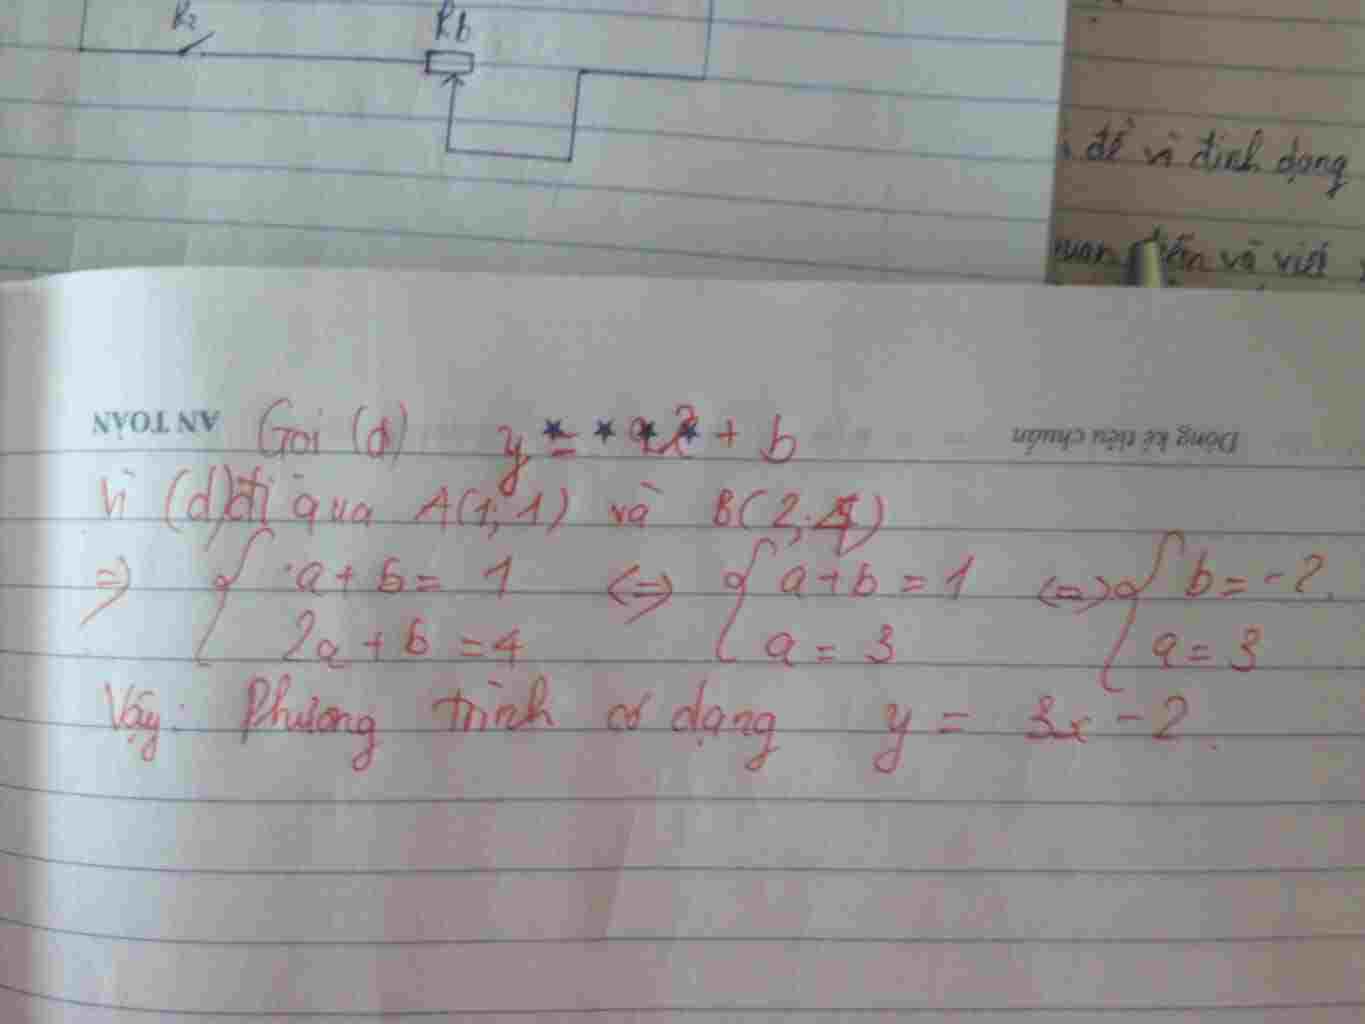 K2 Rb
đề vì định dạng
và viết
AN TOÀN Gọi (d) y = ax + b Dòng kẻ tiêu chuẩn
Vì (d) đi qua A(1; 1) và B(2; 4)
=> { a + b = 1 <=> { a + b = 1 <=> { b = -2.
2a + b = 4 a = 3 a = 3
Vậy: Phương trình có dạng y = 3x - 2.